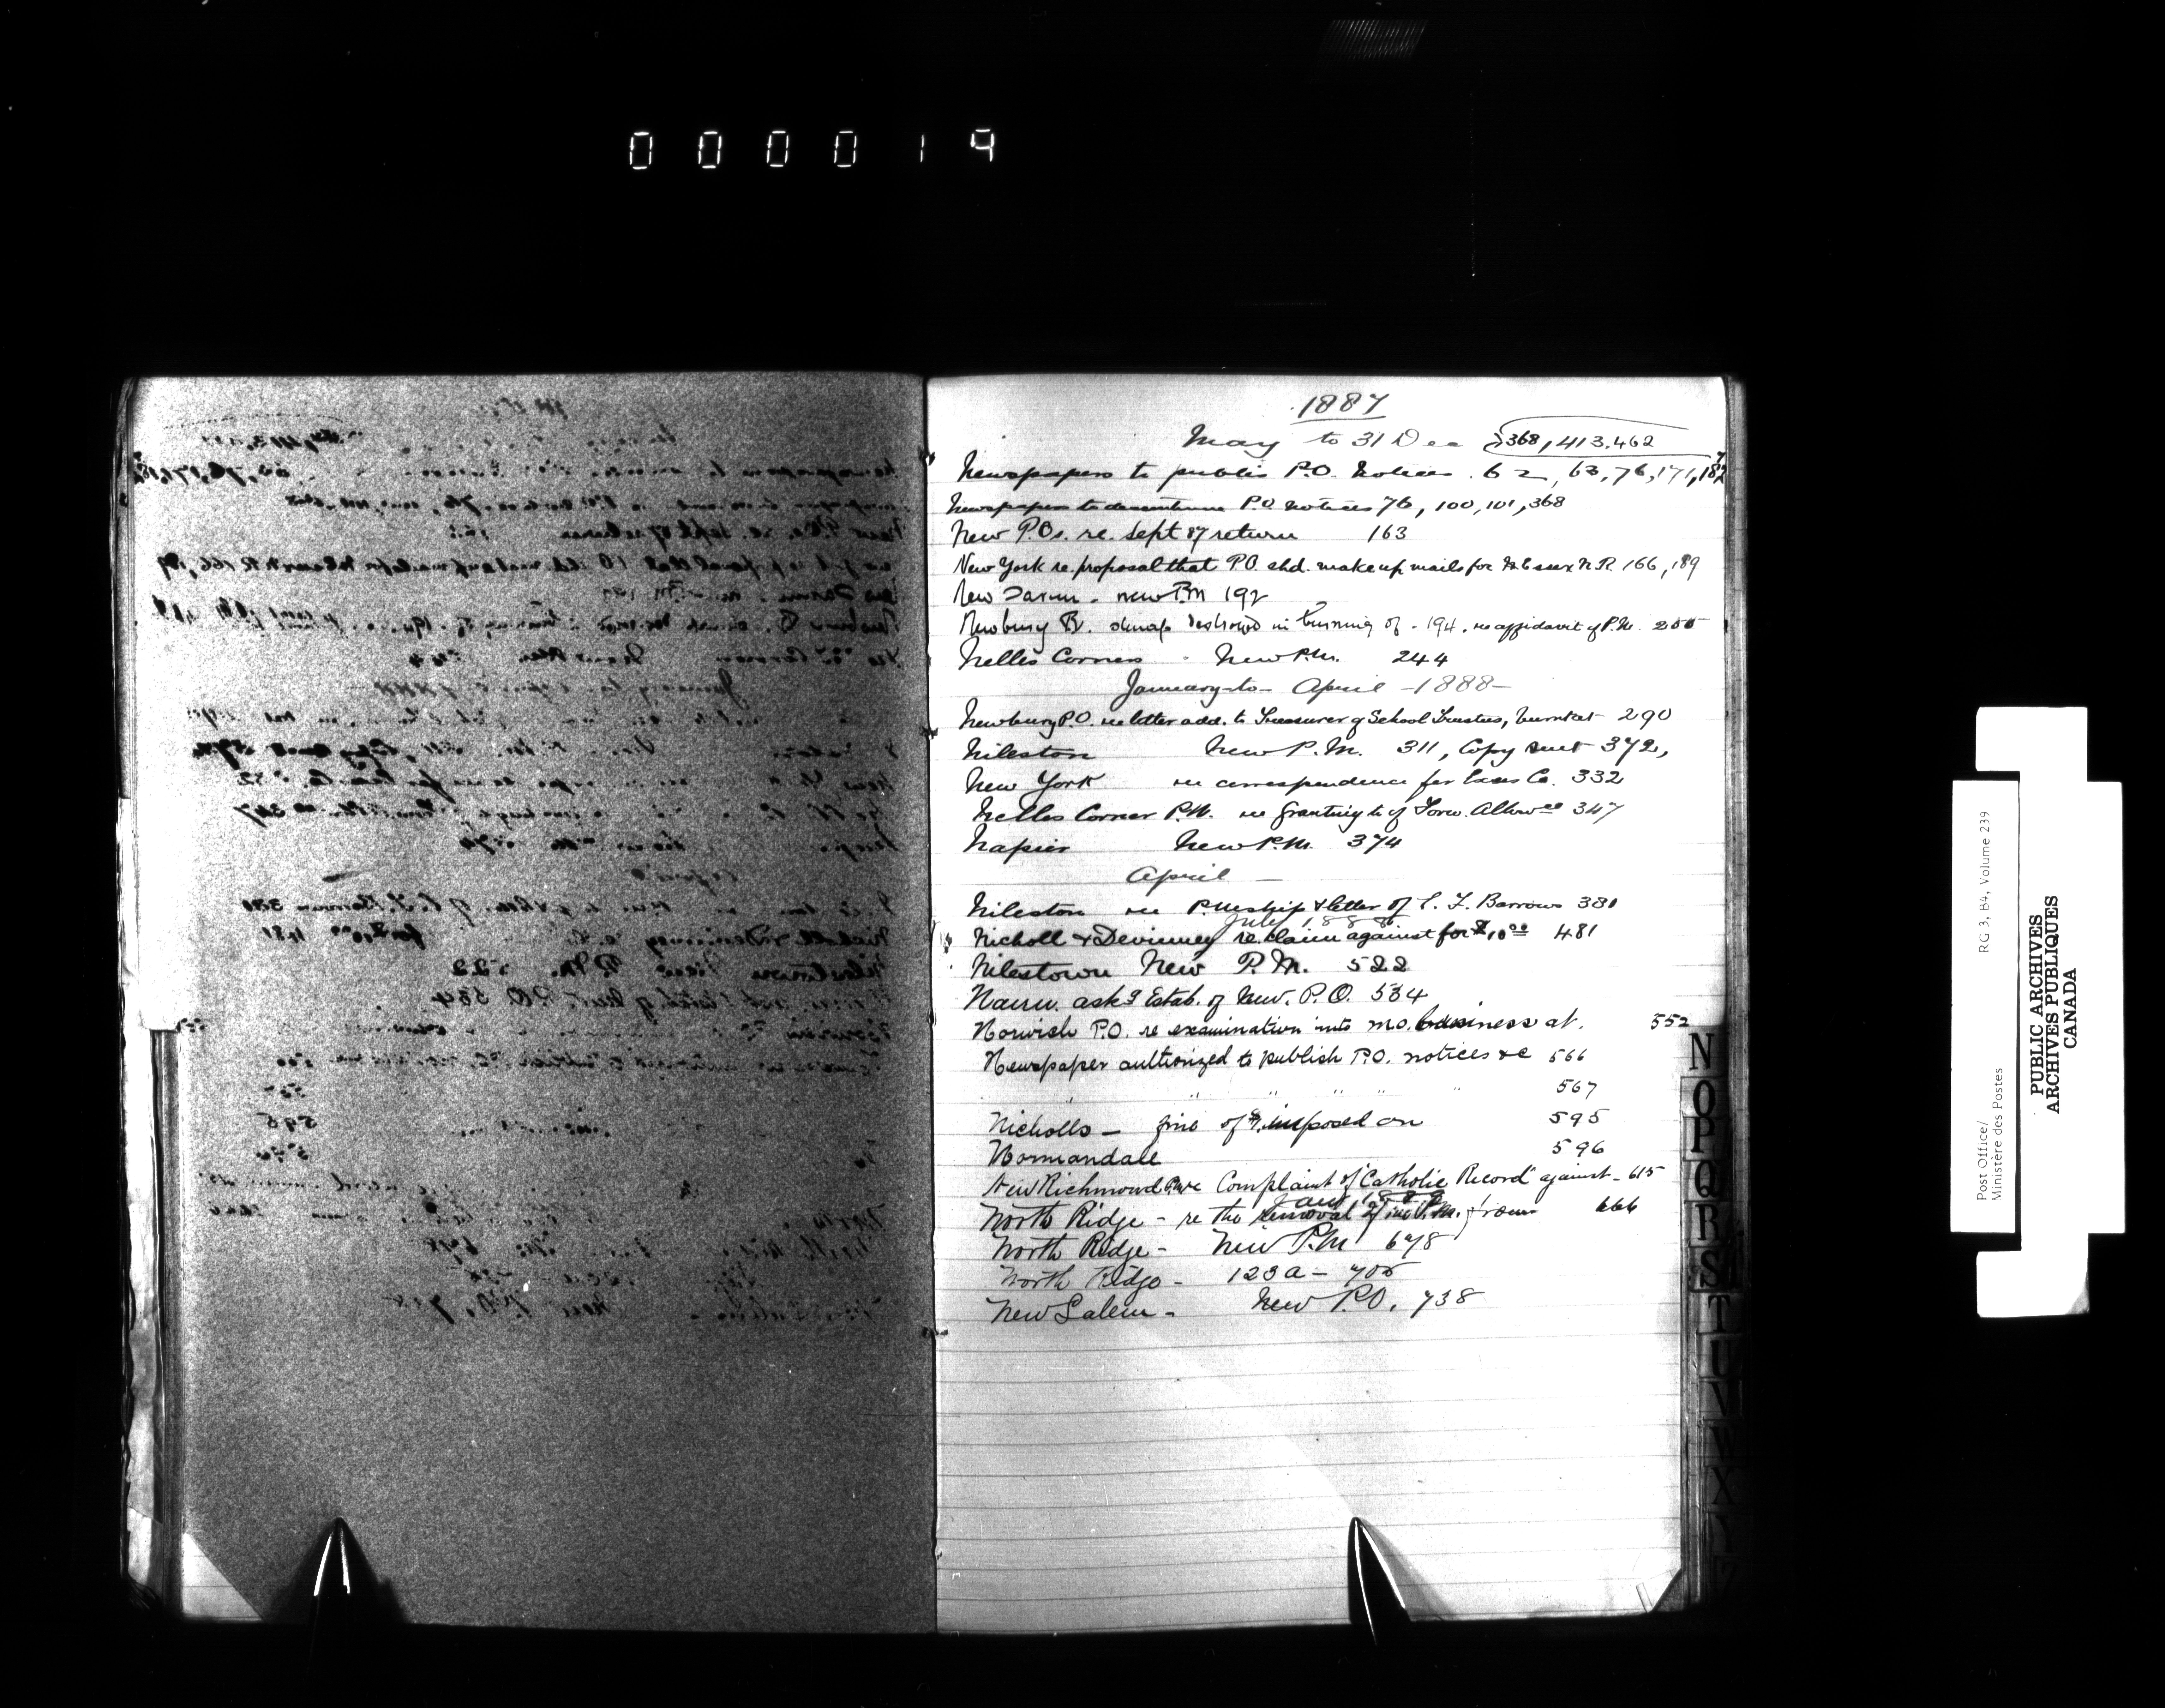 000019
1887
May to 31 Dec 368, 413, 462
Newspapers to publis P.O. Notices . 62, 63, 76, 171, 182
Newspapers to discontinue P.O. notices 76, 100, 101, 368
New P.Os. re. Sept 87 return 163
New York re. proposal that P.O. shd. make up mails for Essex N.R. 166, 189
New Sarum - new P.M 192
Newbury destroyed in burning of - 194. re affidavit of P.M. 200
Nelles Corners - New P.M. 244
January to April - 1888 -
Newbury P.O. re letter add. to Treasurer of School Trustees, burnt at 290
Nileston New P.M. 311, Copy sent 372,
New York re correspondence for Essex Co. 332
Nelles Corner P.M. re granting to of Forw. Allowce 347
Napier New P.M. 374
April -
Nileston re P.M.ship & letter of C. F. Barrows 381
July 1888
Nicholl & Devinney re. claim against for $10.00 481
Nilestown New P.M. 522
Nairn. askg Estab. of New. P.O. 534
Norwich P.O. re examination into M.O. business at. 552
Newspaper authorized to publish P.O. notices &c 566
" " " " " 567
Nicholls - fine of imposed on 595
Normandale 596
New Richmond re Complaint of "Catholic Record" against - 615
Jany 1889
North Ridge - re the removal of the P.M. from 666
North Ridge - New P.M 678
North Ridge - 123a - 705
New Salem - New P.O. 738
N
O
P
Q
R
S
T
U
V
W
X
Y
Z
Post Office/ RG 3, B4, Volume 239
Ministère des Postes
PUBLIC ARCHIVES
ARCHIVES PUBLIQUES
CANADA